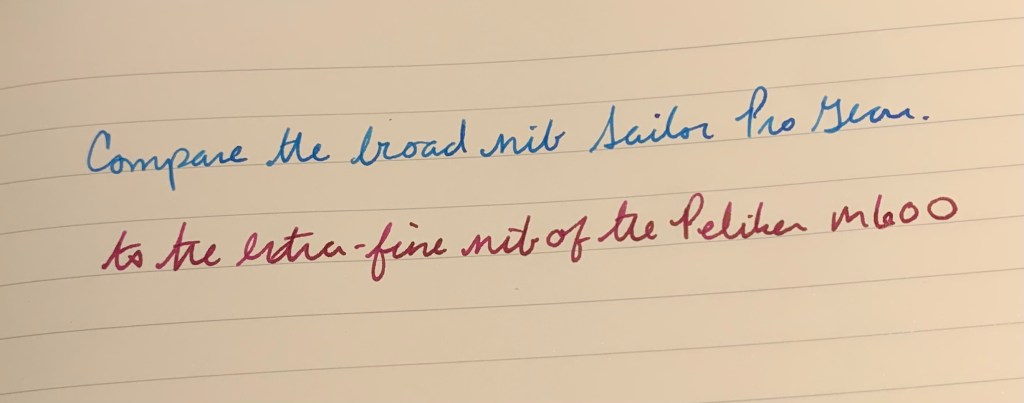 Compare the broad nib Sailor Pro Gear.
to the extra-fine nib of the Pelikan M600